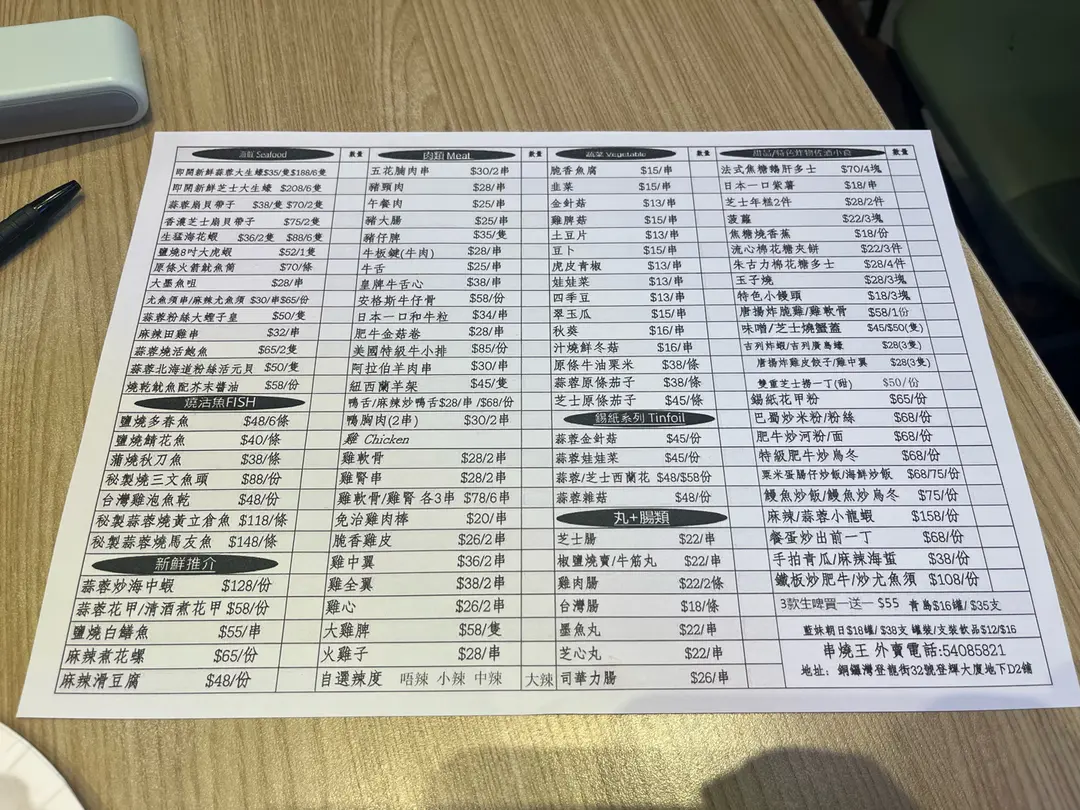 海鮮 Seafood 數量
即開新鮮蒜蓉大生蠔$35/隻$188/6隻
即開新鮮芝士大生蠔 $208/6隻
蒜蓉扇貝帶子 $38/隻 $70/2隻
香濃芝士扇貝帶子 $75/2隻
生猛海花蝦 $36/2隻 $88/6隻
鹽燒8吋大虎蝦 $52/1隻
原條火箭魷魚筒 $70/條
大墨魚咀 $28/串
尤魚須串/麻辣尤魚須 $30/串$65/份
蒜蓉粉絲大蟶子皇 $50/隻
麻辣田雞串 $32/串
蒜蓉燒活鮑魚 $65/2隻
蒜蓉北海道粉絲活元貝 $50/隻
燒乾魷魚配芥末醬油 $58/份
燒活魚FISH
鹽燒多春魚 $48/6條
鹽燒鯖花魚 $40/條
蒲燒秋刀魚 $38/條
秘製三文魚頭 $88/份
台灣雞泡魚乾 $48/份
秘製蒜蓉燒黃立倉魚 $118/條
秘製蒜蓉燒馬友魚 $148/條
新鮮推介
蒜蓉炒海中蝦 $128/份
蒜蓉花甲/清酒煮花甲 $58/份
鹽燒白鱔魚 $55/串
麻辣煮花螺 $65/份
麻辣滑豆腐 $48/份
肉類 Meat 數量
五花腩肉串 $30/2串
豬頸肉 $28/串
午餐肉 $25/串
豬大腸 $25/串
豬仔脾 $35/隻
牛板鍵(牛肉) $28/串
牛舌 $25/串
皇牌牛舌心 $38/串
安格斯牛仔骨 $58/份
日本一口和牛粒 $34/串
肥牛金菇卷 $28/串
美國特級牛小排 $85/份
阿拉伯羊肉串 $30/串
紐西蘭羊架 $45/隻
鴨舌/麻辣炒鴨舌$28/串 /$68/份
鴨胸肉(2串) $30/2串
雞 Chicken
雞軟骨 $28/2串
雞腎串 $28/2串
雞軟骨/雞腎 各3串 $78/6串
免治雞肉棒 $20/串
脆香雞皮 $26/2串
雞中翼 $36/2串
雞全翼 $38/2串
雞心 $26/2串
大雞脾 $58/隻
火雞子 $28/串
自選辣度 唔辣 小辣 中辣 大辣
蔬菜 Vegetable 數量
脆香魚腐 $15/串
韭菜 $15/串
金針菇 $13/串
雞脾菇 $15/串
土豆片 $13/串
豆卜 $15/串
虎皮青椒 $13/串
娃娃菜 $13/串
四季豆 $13/串
翠玉瓜 $15/串
秋葵 $16/串
汁燒鮮冬菇 $16/串
原條牛油粟米 $38/條
蒜蓉原條茄子 $38/條
芝士原條茄子 $45/條
錫紙系列 Tinfoil
蒜蓉金針菇 $45/份
蒜蓉娃娃菜 $45/份
蒜蓉/芝士西蘭花 $48/$58份
蒜蓉雜菇 $48/份
丸+腸類
芝士腸 $22/串
椒鹽燒賣/牛筋丸 $22/串
雞肉腸 $22/2條
台灣腸 $18/條
墨魚丸 $22/串
芝心丸 $22/串
司華力腸 $26/串
甜品/特色炸物佐酒小食 數量
法式焦糖鵝肝多士 $70/4塊
日本一口紫薯 $18/串
芝士年糕2件 $28/2件
菠蘿 $22/3塊
焦糖燒香蕉 $18/份
流心棉花糖夾餅 $22/3件
朱古力棉花糖多士 $28/4件
玉子燒 $28/3塊
特色小饅頭 $18/3塊
唐揚炸脆雞/雞軟骨 $58/1份
味噌/芝士燒蟹蓋 $45/$50(隻)
吉列炸蝦/吉列廣島蠔 $28(3隻)
唐揚炸雞皮餃子/雞中翼 $28(3隻)
雙重芝士撈一丁(甜) $50/份
錫紙花甲粉 $65/份
巴蜀炒米粉/粉絲 $68/份
肥牛炒河粉/面 $68/份
特級肥牛炒烏冬 $68/份
粟米蛋腸仔炒飯/海鮮炒飯 $68/75/份
鰻魚炒飯/鰻魚炒烏冬 $75/份
麻辣/蒜蓉小龍蝦 $158/份
餐蛋炒出前一丁 $68/份
手拍青瓜/麻辣海蜇 $38/份
鐵板炒肥牛/炒尤魚須 $108/份
3款生啤買一送一 $55 青島$16罐/ $35支
藍妹朝日$18罐/ $38支 罐裝/支裝飲品$12/$16
串燒王 外賣電話:54085821
地址: 銅鑼灣登龍街32號登輝大廈地下D2鋪